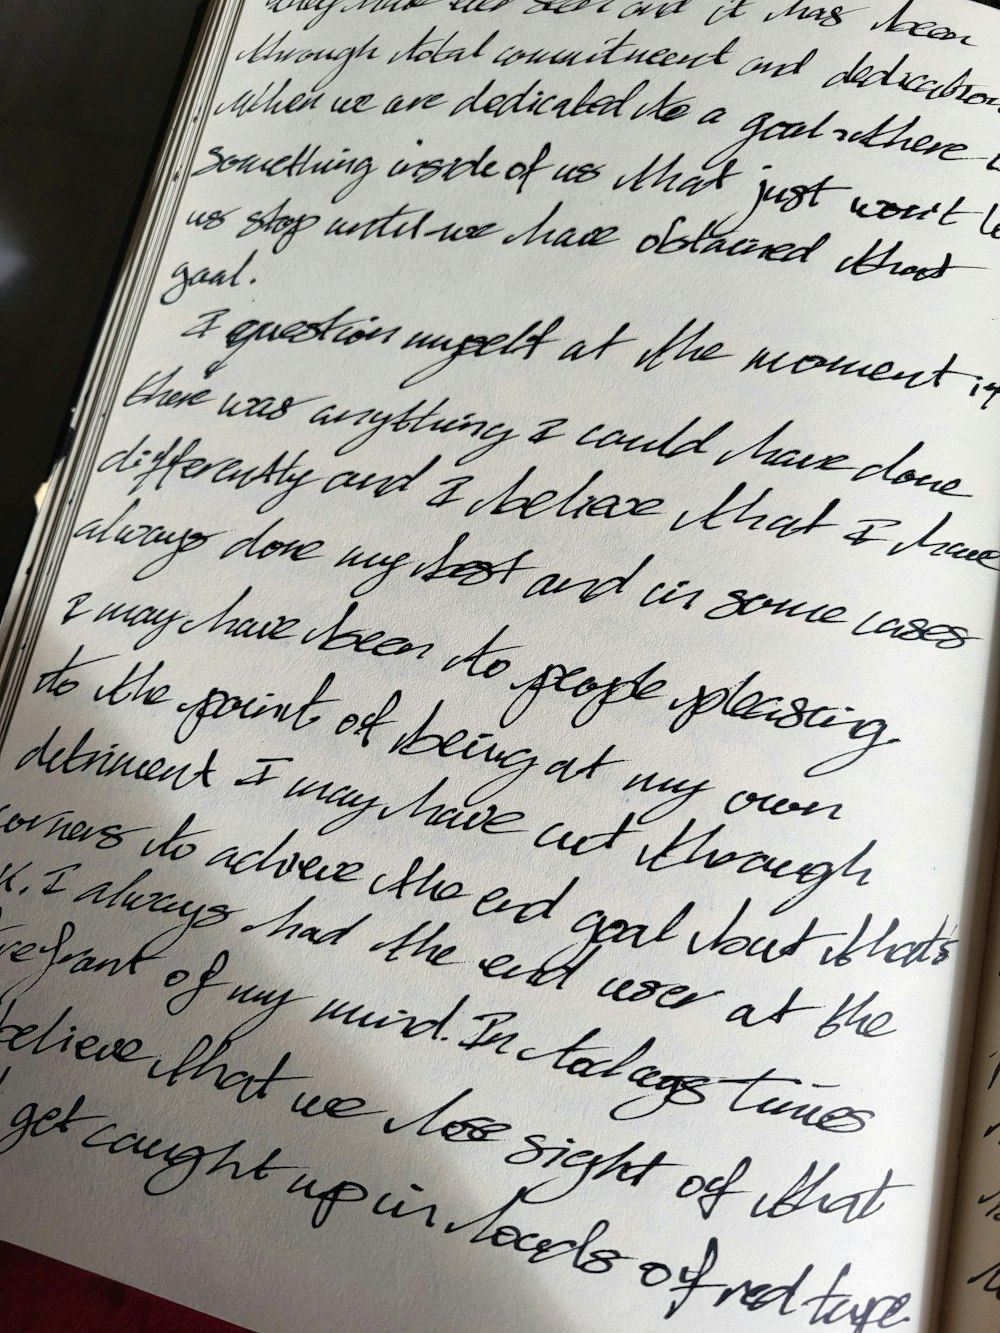 and it has been
through total commitment and dedication
When we are dedicated to a goal there
something inside of us that just won't le
us stop until we have obtained that
goal.
I question myself at the moment if
there was anything I could have done
differently and I believe that I have
always done my best and in some cases
I may have been to people pleasing
to the point of being at my own
detriment I may have cut through
corners to achieve the end goal but that's
k. I always had the end user at the
refrant of my mind. In todays times
believe that we lose sight of that
get caught up in loads of red tape